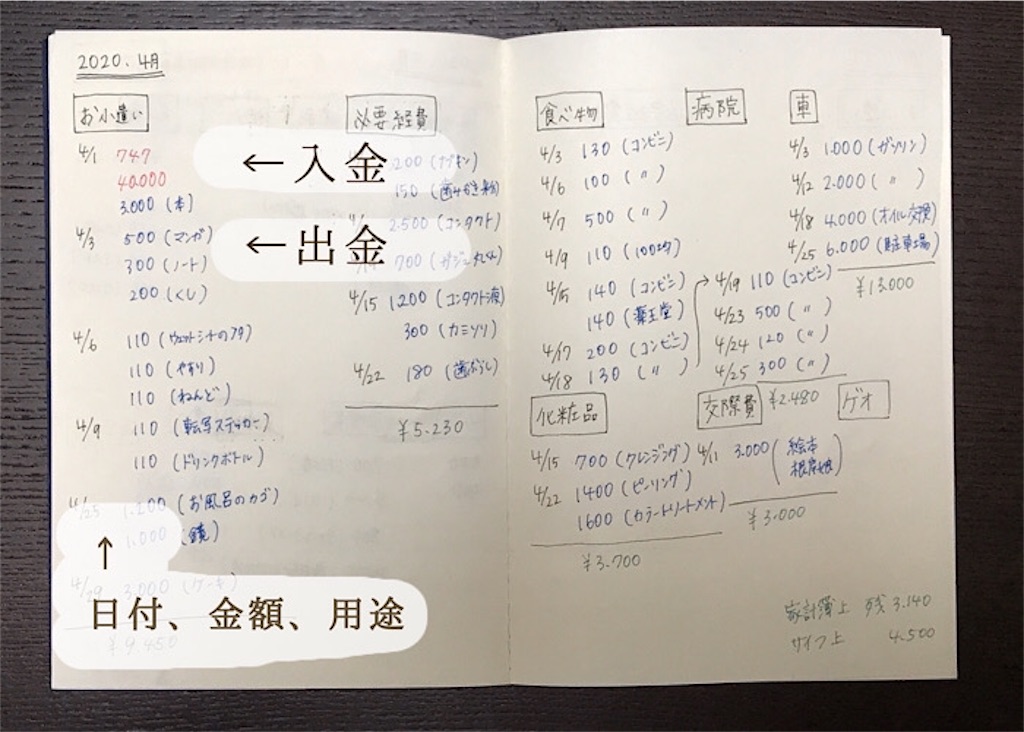 2020.4月
お小遣い
4/1 747
40,000
3,000 (本)
4/3 500 (マンガ)
300 (ノート)
200 (くし)
4/6 110 (ウェットシートのフタ)
110 (やすり)
110 (ねんど)
4/9 110 (転写ステッカー)
110 (ドリンクボトル)
4/25 1,200 (お風呂のカゴ)
1,000 (鏡)
4/29 3,000 (ケーキ)
¥9,450
←入金
←出金
↑
日付、金額、用途
必要経費
200 (ナプキン)
150 (歯みがき粉)
2,500 (コンタクト)
700
4/15 1200 (コンタクト液)
300 (カミソリ)
4/22 180 (歯ブラシ)
¥5,230
食べ物
4/3 130 (コンビニ)
4/6 100 (〃)
4/7 500 (〃)
4/9 110 (100均)
4/15 140 (コンビニ)
140 (薬王堂)
4/17 200 (コンビニ)
4/18 130 (〃)
病院
→4/19 110 (コンビニ)
4/23 500 (〃)
4/24 120 (〃)
4/25 300 (〃)
¥2,480
車
4/3 1,000 (ガソリン)
4/12 2,000 (〃)
4/18 4,000 (オイル交換)
4/25 6,000 (駐車場)
¥13,000
化粧品
4/15 700 (クレンジング)
4/22 1400 (ピーリング)
1600 (カラートリートメント)
¥3,700
交際費
4/11 3,000 (絵本
¥3,000
ゲオ
家計簿上 残 3,140
サイフ上 4,500